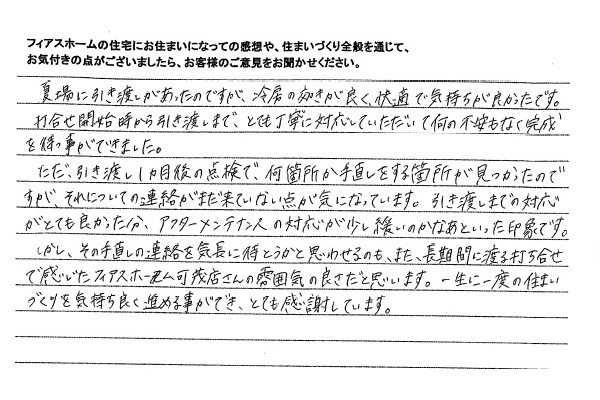 フィアスホームの住宅にお住まいになっての感想や、住まいづくり全般を通じて、
お気付きの点がございましたら、お客様のご意見をお聞かせください。
夏場に引き渡しがあったのですが、冷房の効きが良く、快適で気持ちが良かったです。
打合せ開始時から引き渡しまで、とても丁寧に対応していただいて何の不安もなく完成
を待つ事ができました。
ただ、引き渡し1カ月後の点検で、何箇所か手直しをする箇所が見つかったので
すが、それについての連絡がまだ来ていない点が気になっています。引き渡しまでの対応
がとても良かった分、アフターメンテナンスの対応が少し緩いのかなあといった印象です。
しかし、その手直しの連絡を気長に待とうかと思わせるのも、また、長期間に渡る打ち合せ
で感じたフィアスホーム可茂店さんの雰囲気の良さだと思います。一生に一度の住まい
づくりを気持ち良く進める事ができ、とても感謝しています。